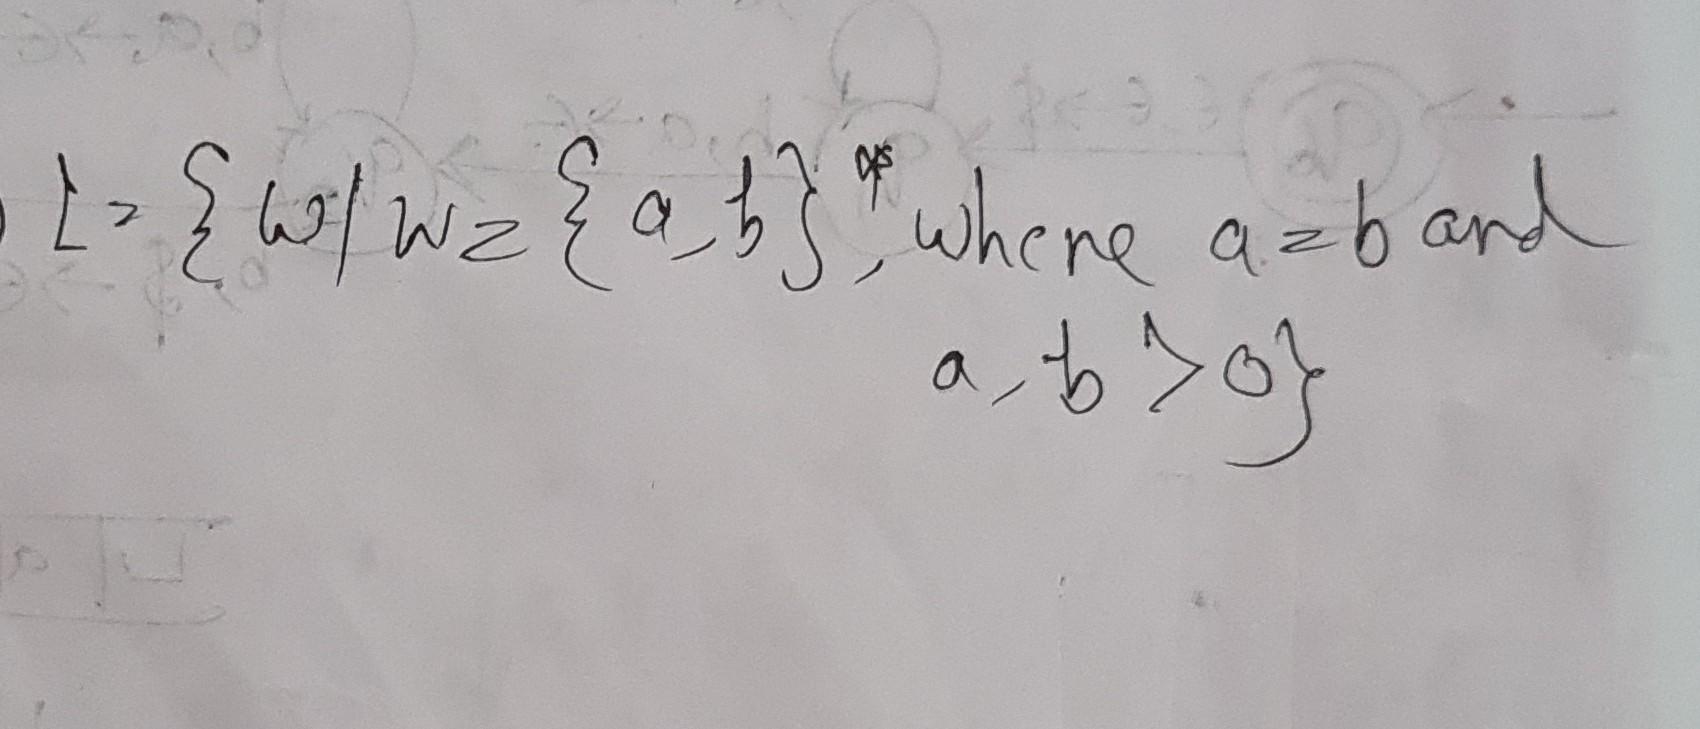 L = {w/w = {a,b}*, where a=b and
a, b > 0}